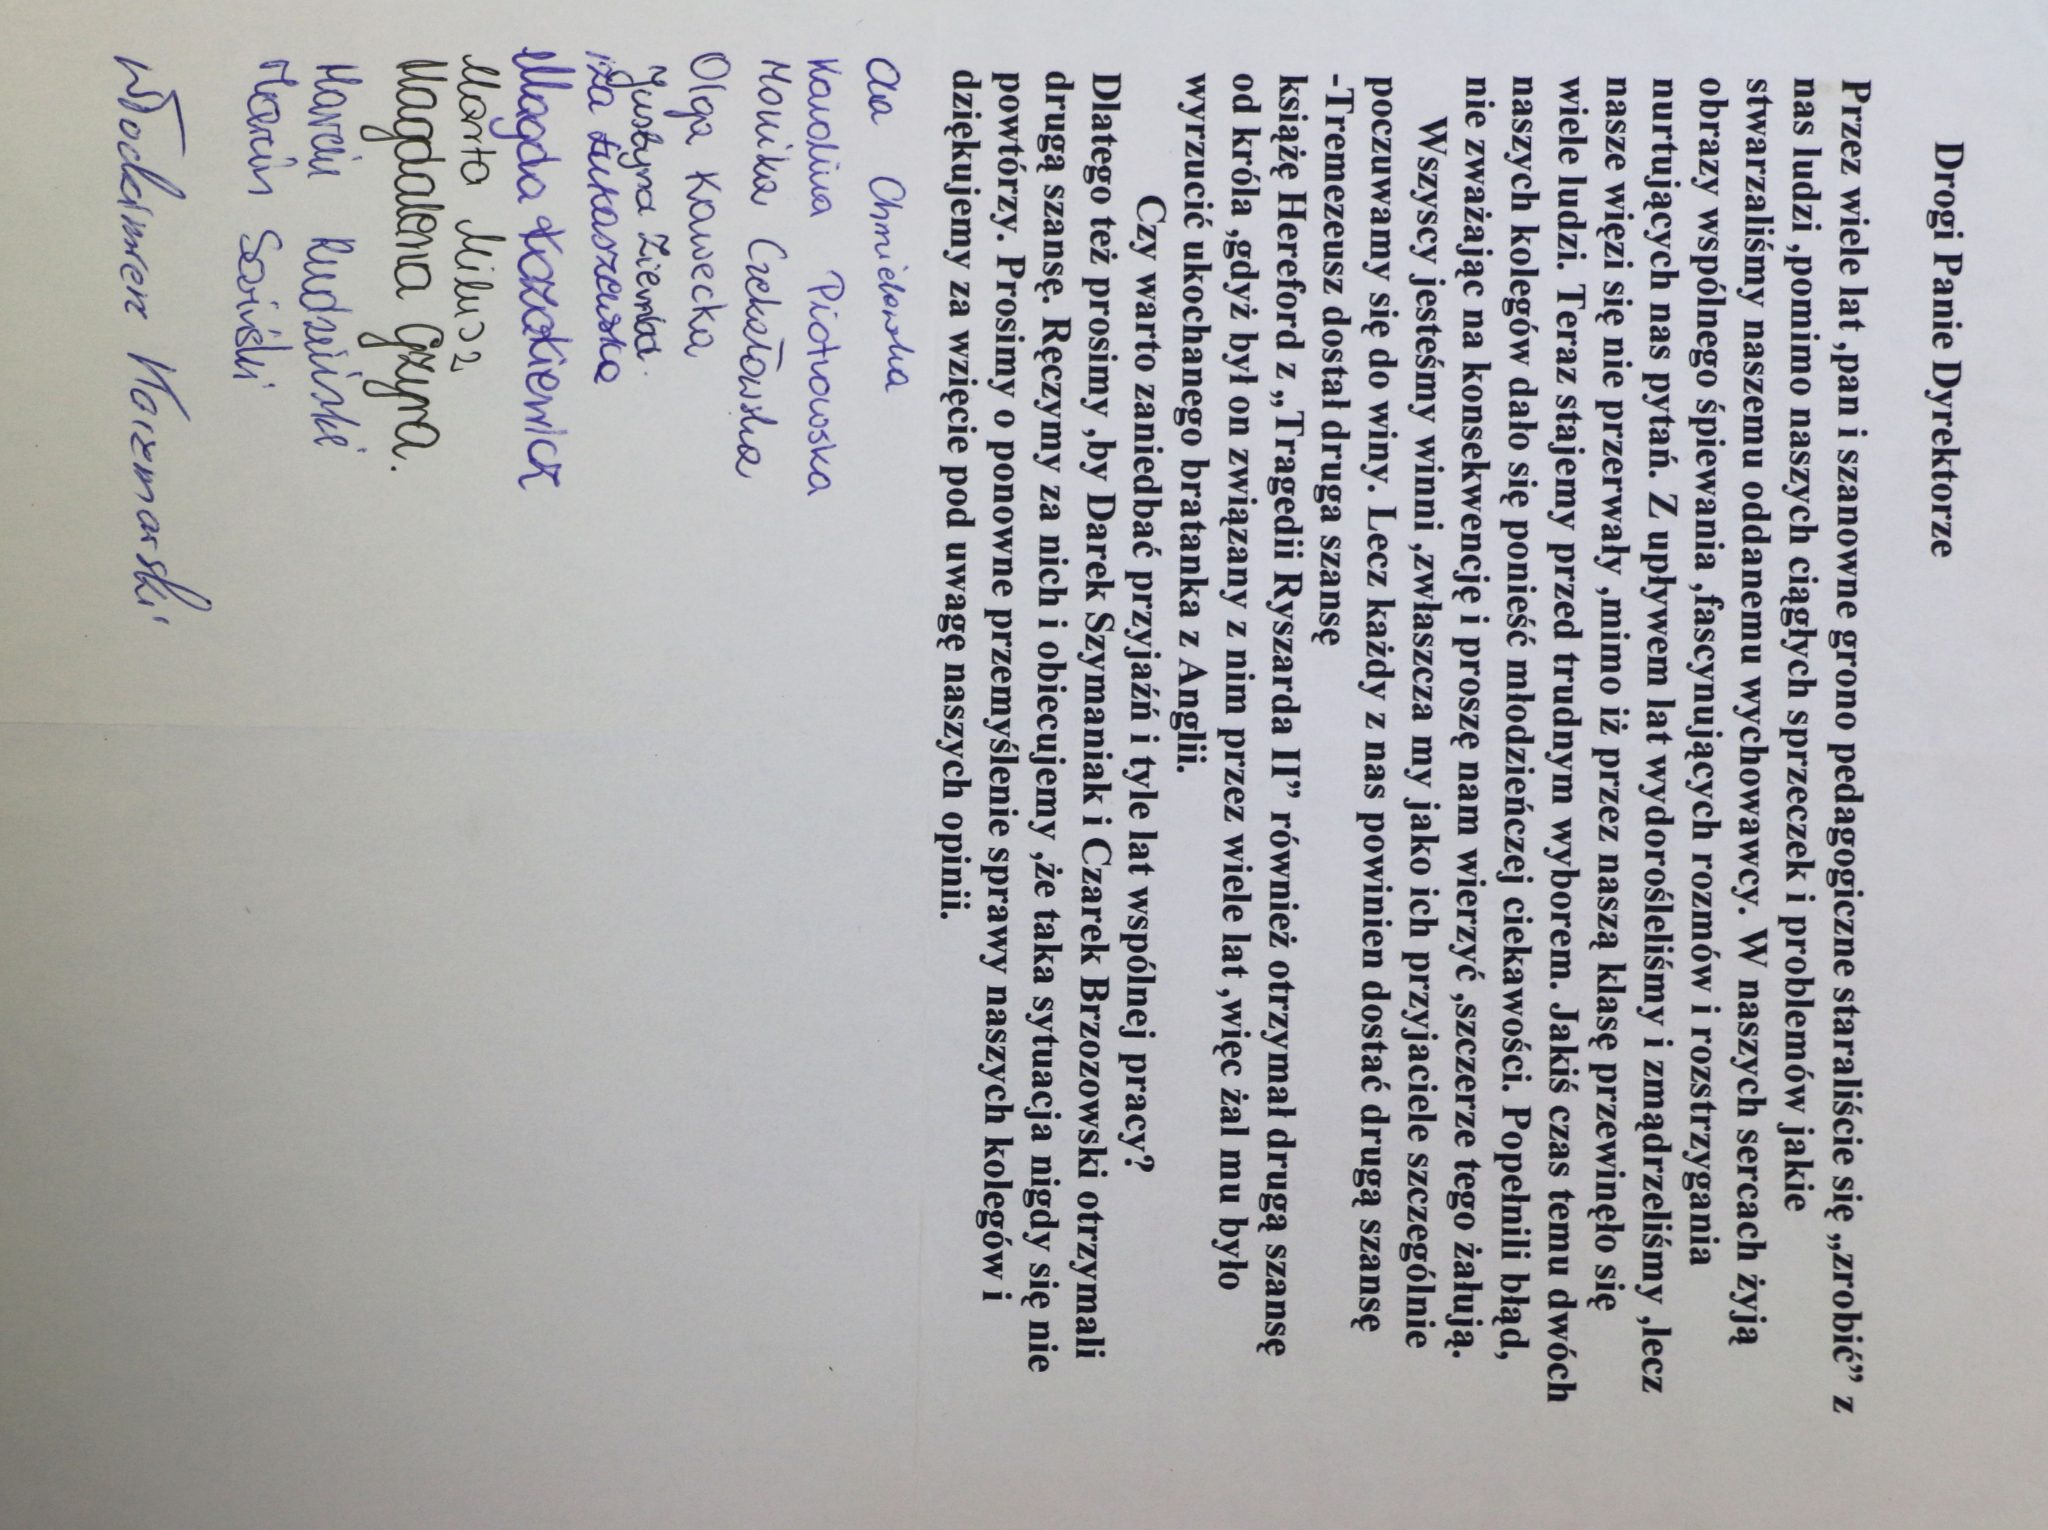 Drogi Panie Dyrektorze
Przez wiele lat ,pan i szanowne grono pedagogiczne staraliście się „zrobić” z
nas ludzi ,pomimo naszych ciągłych sprzeczek i problemów jakie
stwarzaliśmy naszemu oddanemu wychowawcy. W naszych sercach żyją
obrazy wspólnego śpiewania ,fascynujących rozmów i rozstrzygania
nurtujących nas pytań. Z upływem lat wydorośleliśmy i zmądrzeliśmy ,lecz
nasze więzi się nie przerwały ,mimo iż przez naszą klasę przewinęło się
wiele ludzi. Teraz stajemy przed trudnym wyborem. Jakiś czas temu dwóch
naszych kolegów dało się ponieść młodzieńczej ciekawości. Popełnili błąd,
nie zważając na konsekwencję i proszę nam wierzyć ,szczerze tego żałują.
Wszyscy jesteśmy winni ,zwłaszcza my jako ich przyjaciele szczególnie
poczuwamy się do winy. Lecz każdy z nas powinien dostać drugą szansę
-Tremezeusz dostał druga szansę
książę Hereford z „Tragedii Ryszarda II” również otrzymał drugą szansę
od króla ,gdyż był on związany z nim przez wiele lat ,więc żal mu było
wyrzucić ukochanego bratanka z Anglii.
Czy warto zaniedbać przyjaźń i tyle lat wspólnej pracy?
Dlatego też prosimy ,by Darek Szymaniak i Czarek Brzozowski otrzymali
drugą szansę. Ręczymy za nich i obiecujemy ,że taka sytuacja nigdy się nie
powtórzy. Prosimy o ponowne przemyślenie sprawy naszych kolegów i
dziękujemy za wzięcie pod uwagę naszych opinii.
Ola Chmielewska
Karolina Piotrowska
Monika Czekałowska
Olga Kawecka
Justyna Ziemba.
Iza Łukaszewska
Magda Kozakiewicz
Marta Miłusz
Magdalena Gzyra.
Marcin Rudziński
Marcin
Włodzimierz Kaczmarski